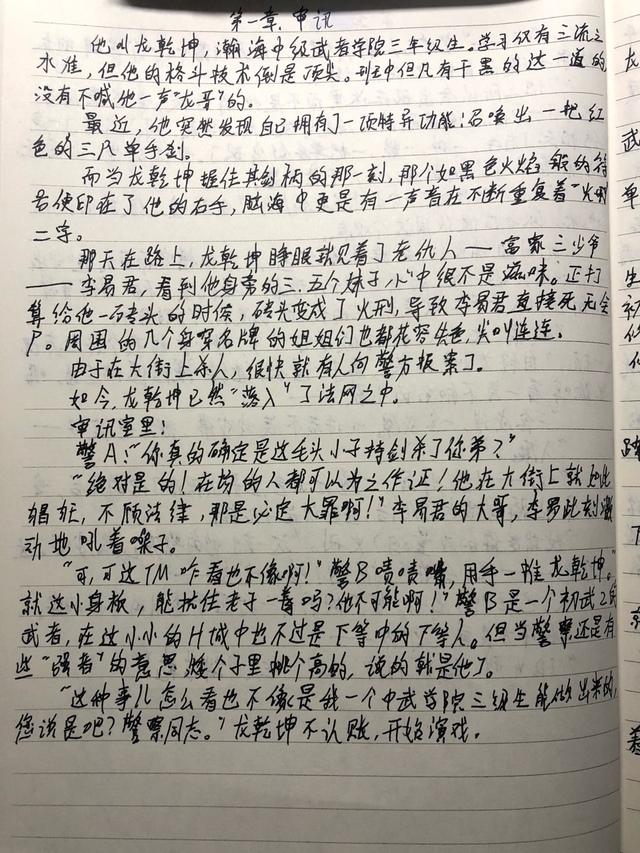 第一章.审讯
他叫龙乾坤,瀚海中级武者学院三年级生。学习仅有三流之
水准,但他的格斗技术倒是顶尖。班中但凡有干黑的这一道的
没有不喊他一声“龙哥”的。
最近,他突然发现自己拥有了一项特异功能:召唤出一把红
色的三尺单手剑。
而当龙乾坤握住其剑柄的那一刻,那个如黑色火焰般的符
号便印在了他的右手,脑海中更是有一声音在不断重复着“火刑”
二字。
那天在路上,龙乾坤睁眼就见着了老仇人——富家三少爷
——李易君,看到他身旁的三、五个妹子,心中很不是滋味。正打
算给他一砖头的时候,砖头变成了火刑,导致李易君直接死无全
尸。周围的几个身穿名牌的姐姐们也都花容失色,尖叫连连。
由于在大街上杀人,很快就有人向警方报案了。
如今,龙乾坤已然“落入”了法网之中。
审讯室里:
警A:“你真的确定是这毛头小子持剑杀了你弟?”
“绝对是的!在场的人都可以为之作证!他在大街上就如此
猖狂,不顾法律,那是必定大罪啊!”李易君的大哥,李罗此刻激
动地吼着嗓子。
“可,可这TM咋看也不像啊!”警B啧啧嘴,用手一推龙乾坤。“
就这小身板,能抗住老子一着吗?他不可能啊!”警B是一个初武2的
武者,在这小小的H城中也不过是下等中的下等人。但当警察还是有
些“强者”的意思,矮个子里挑个高的,说的就是他了。
“这种事儿怎么看也不像是我一个中武学院三级生能做出来的,
您说是吧?警察同志。”龙乾坤不认账,开始演戏。